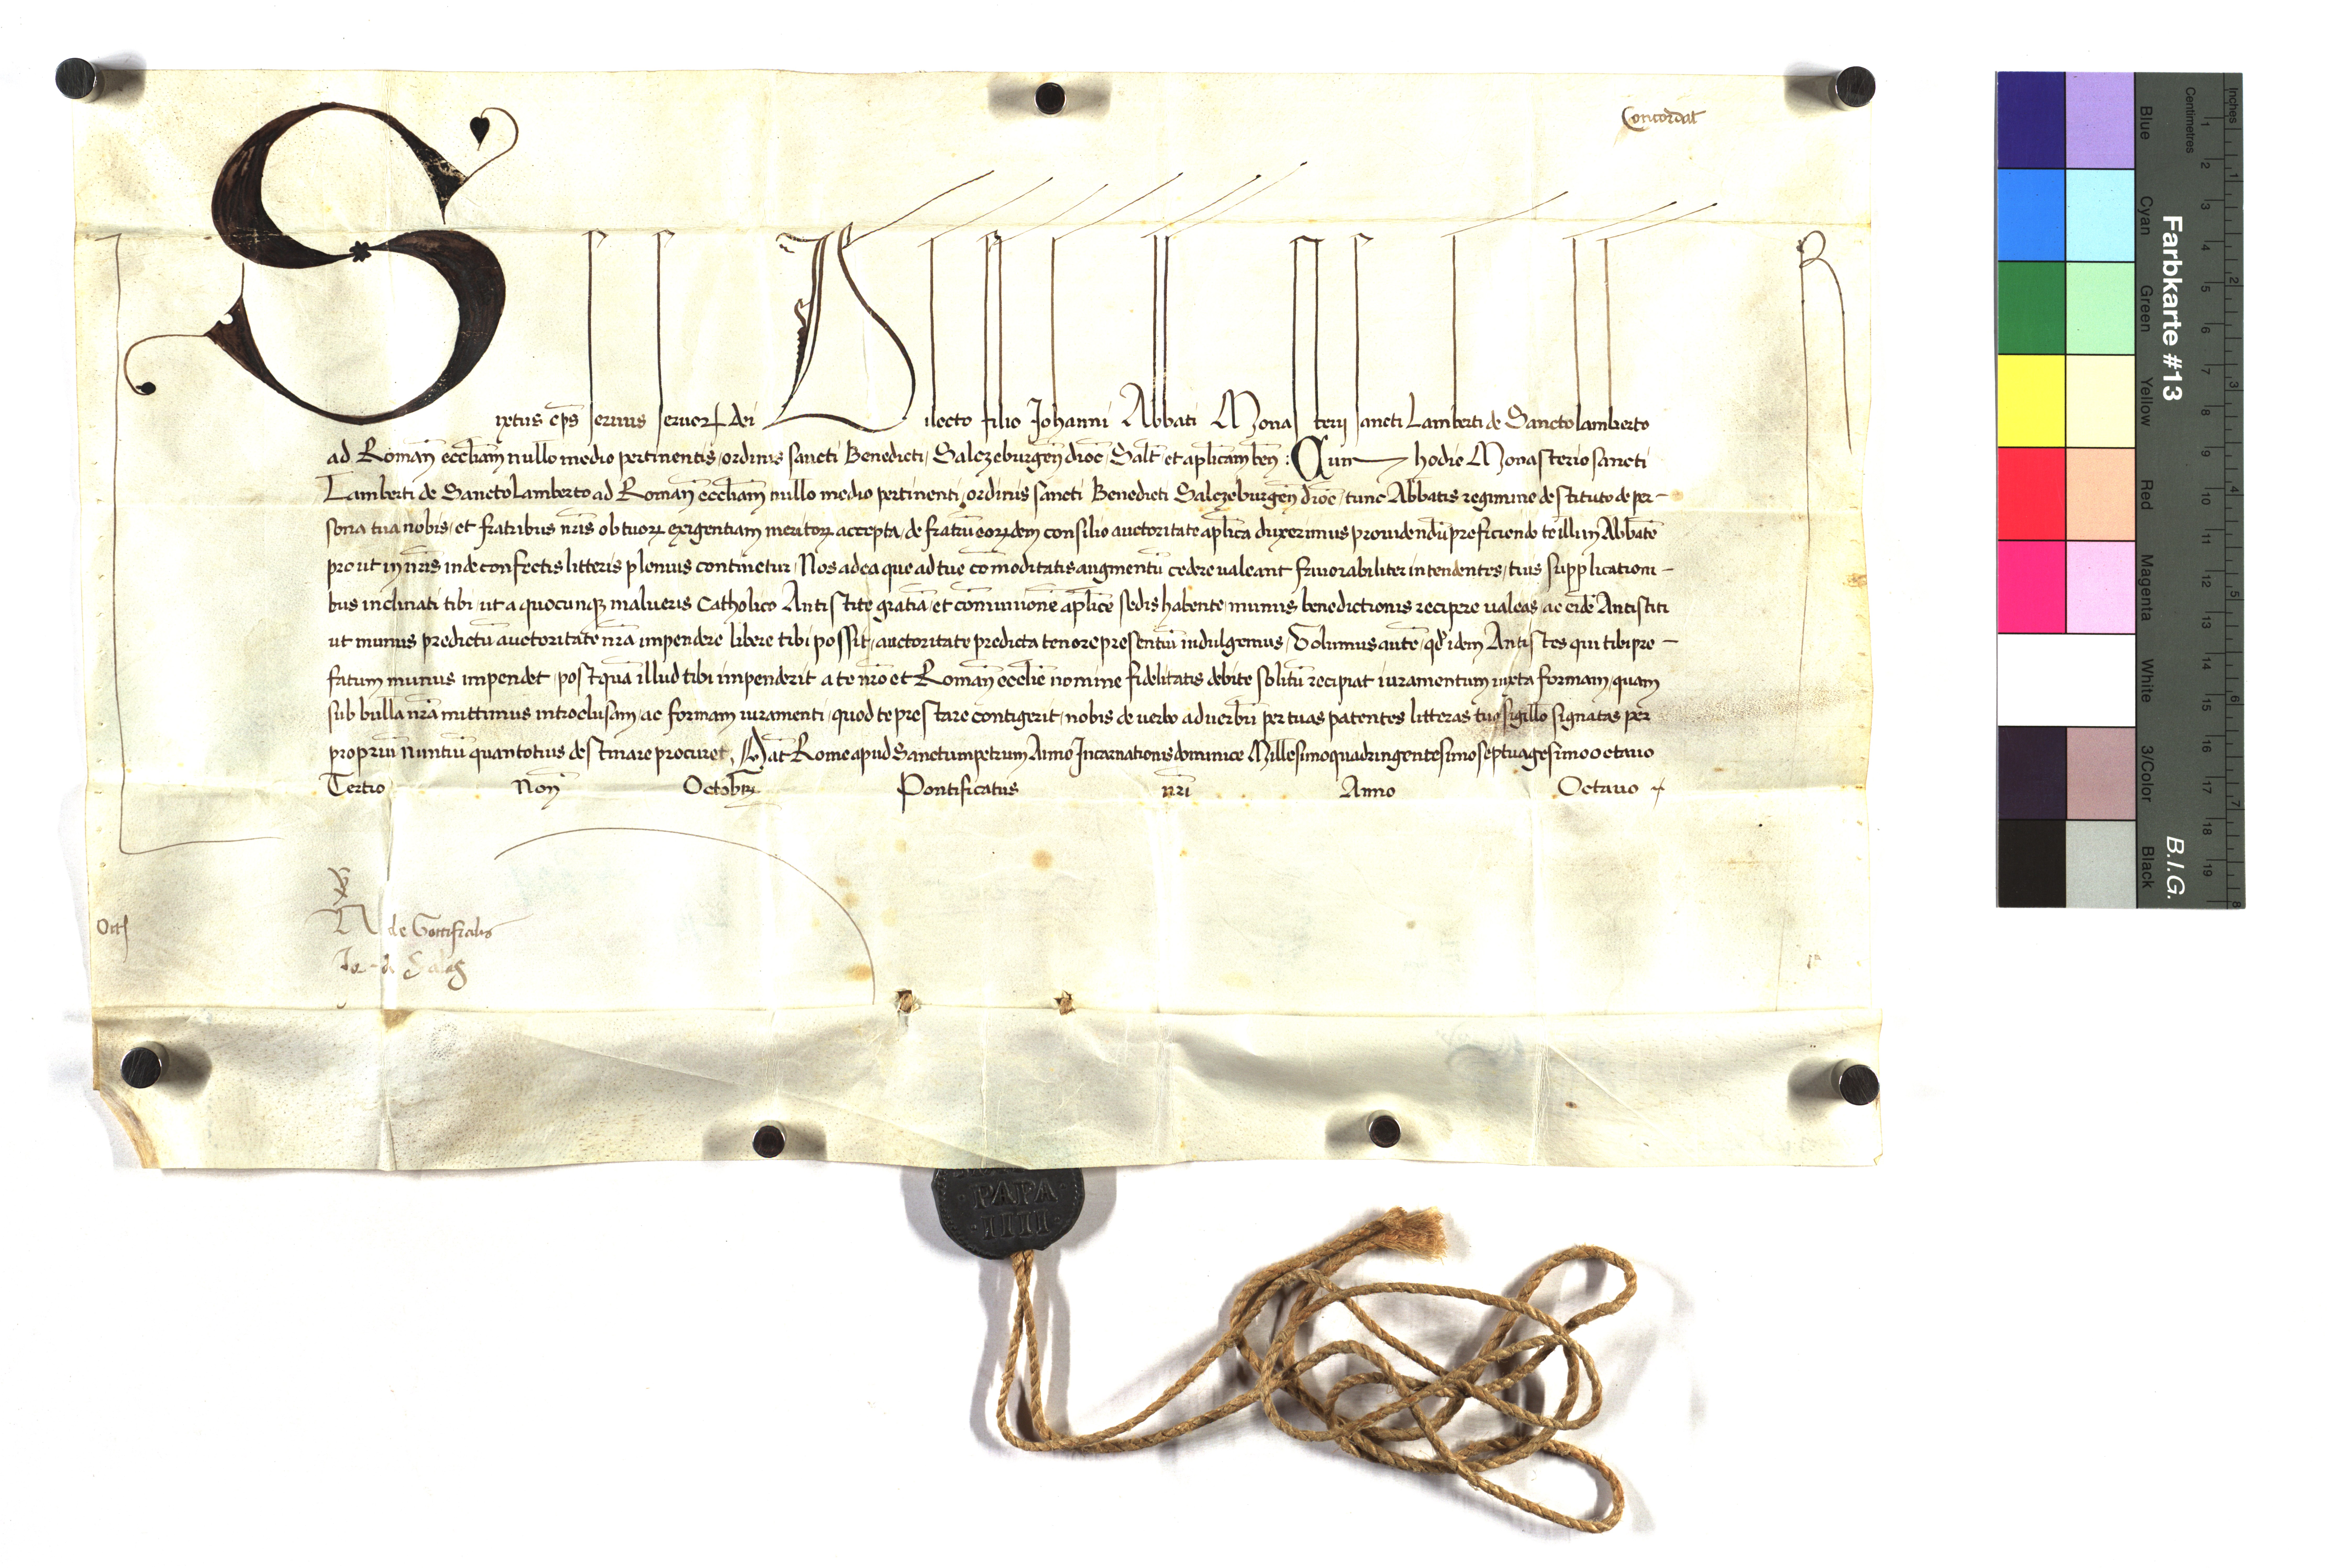 Concordat
Sixtus ep̄s seruus seruoꝝ dei Dilecto filio Johanni Abbati Monasterij sancti Lamberti de Sanctolamberto
ad Romanā eccl̄iam nullo medio pertinentis, ordinis sancti Benedicti, Salczeburgeñ dioc̄, Salt̄ et ap̄licam beñ: Cum hodie Monasterio sancti
Lamberti de Sancto Lamberto ad Romanā eccl̄iam nullo medio pertinenti, ordinis sancti Benedicti Salczeburgeñ dioc̄, tunc Abbatis regimine destituto de per-
sona tua nobis, et fratribus nr̄is ob tuoꝝ exigentiam meritoꝝ accepta, de fratrū eorꝝdem consilio auctoritate ap̄lica duxerimus prouidendū preficiendo te illi in Abbatē
prout in nr̄is inde confectis litteris plenius continetur, Nos ad ea que ad tue cōmoditatis augmentū cedere valeant fauorabiliter intendentes, tuis supplicationi-
bus inclinati tibi, ut a quocunqꝫ malueris Catholico Antistite gratiā et cōmunionē ap̄lice sedis habente, munus benedictionis recipere ualeas, ac eidē Antistiti
ut munus predictū auctoritate nr̄a impendere libere tibi possit, auctoritate predicta tenore presentiū indulgemus, Volumus autē, qd̄ idem Antistes qui tibi pre-
fatum munus impendet, postquā illud tibi impenderit a te nr̄o et Romanē eccl̄ie nomine fidelitatis debite solitū recipiat iuramentum iuxta formam, quam
sub bulla nr̄a mittimus introclusam, ac formam iuramenti, quod te prestare contigerit, nobis de uerbo ad uerbū per tuas patentes litteras tuo sigillo signatas per
propriū nuntiū quantotius destinare procuret, Dat̄ Rome apud Sanctumpetrum Anno Incarnationis dominice Millesimoquadringentesimoseptuagesimooctauo
Tertio Noñ Octobꝝ Pontificatus nr̄i Anno Octauo
N de Gottifredis
Jo. de Salas
PAPA
IIII
Farbkarte #13
B.I.G.
Inches
Centimetres
Blue
Cyan
Green
Yellow
Red
Magenta
White
3/Color
Black
1 2 3 4 5 6 7 8 9 10 11 12 13 14 15 16 17 18 19
1 2 3 4 5 6 7 8